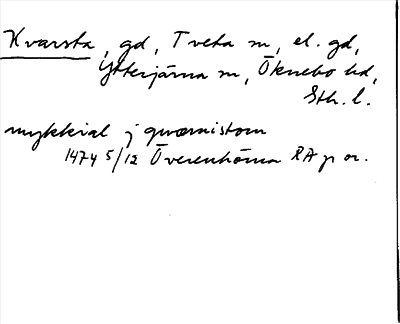 Kvarsta, gd, Tveta sn, el. gd,
Ytterjärna sn, Öknebo hd,
Sth. l.
mykkial j qwarnistom
1474 5/12 Överenhörna RA p or.